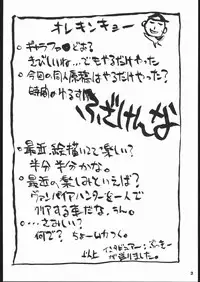 オレキンキョー
きびしいね…でもやるだけやった
○今回の同人原稿はやるだけやった?
時間がゆるす
ふざけんな
○最近、絵描いてて楽しい?
半分半分かな。
○最近の楽しみといえば?
ヴァンパイアハンターを一人で
クリアする事だな、うん。
○…さみしい?
何で?ちょームカつく。
以上 インタビュアー
が送りました。
3